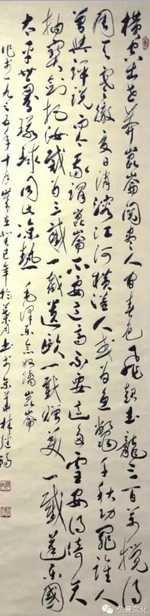 橫空出世莽崑崙閱盡人間春色飛起玉龍三百萬攪得
周天寒徹夏日消溶江河橫溢人或為魚鱉千秋功罪誰人
曾與評說而今我謂崑崙不要這高不要這多雪安得倚天
抽寶劍把汝裁為三截一截遺歐一截贈美一截還東國
太平世界環球同此涼熱 毛澤東念奴嬌崑崙
作於一九三五年十月